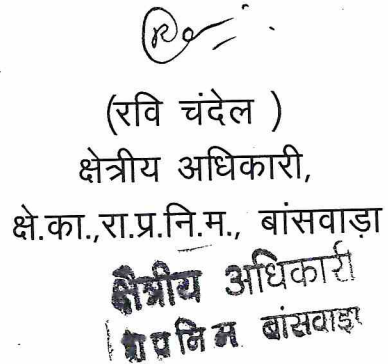 (रवि चंदेल )
क्षेत्रीय अधिकारी,
क्षे.का.,रा.प्र.नि.म., बांसवाड़ा
क्षैत्रीय अधिकारी
प्र नि म बांसवाड़ा